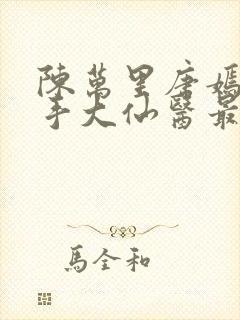 陳萬里唐嫣
手大仙醫最
馬全和